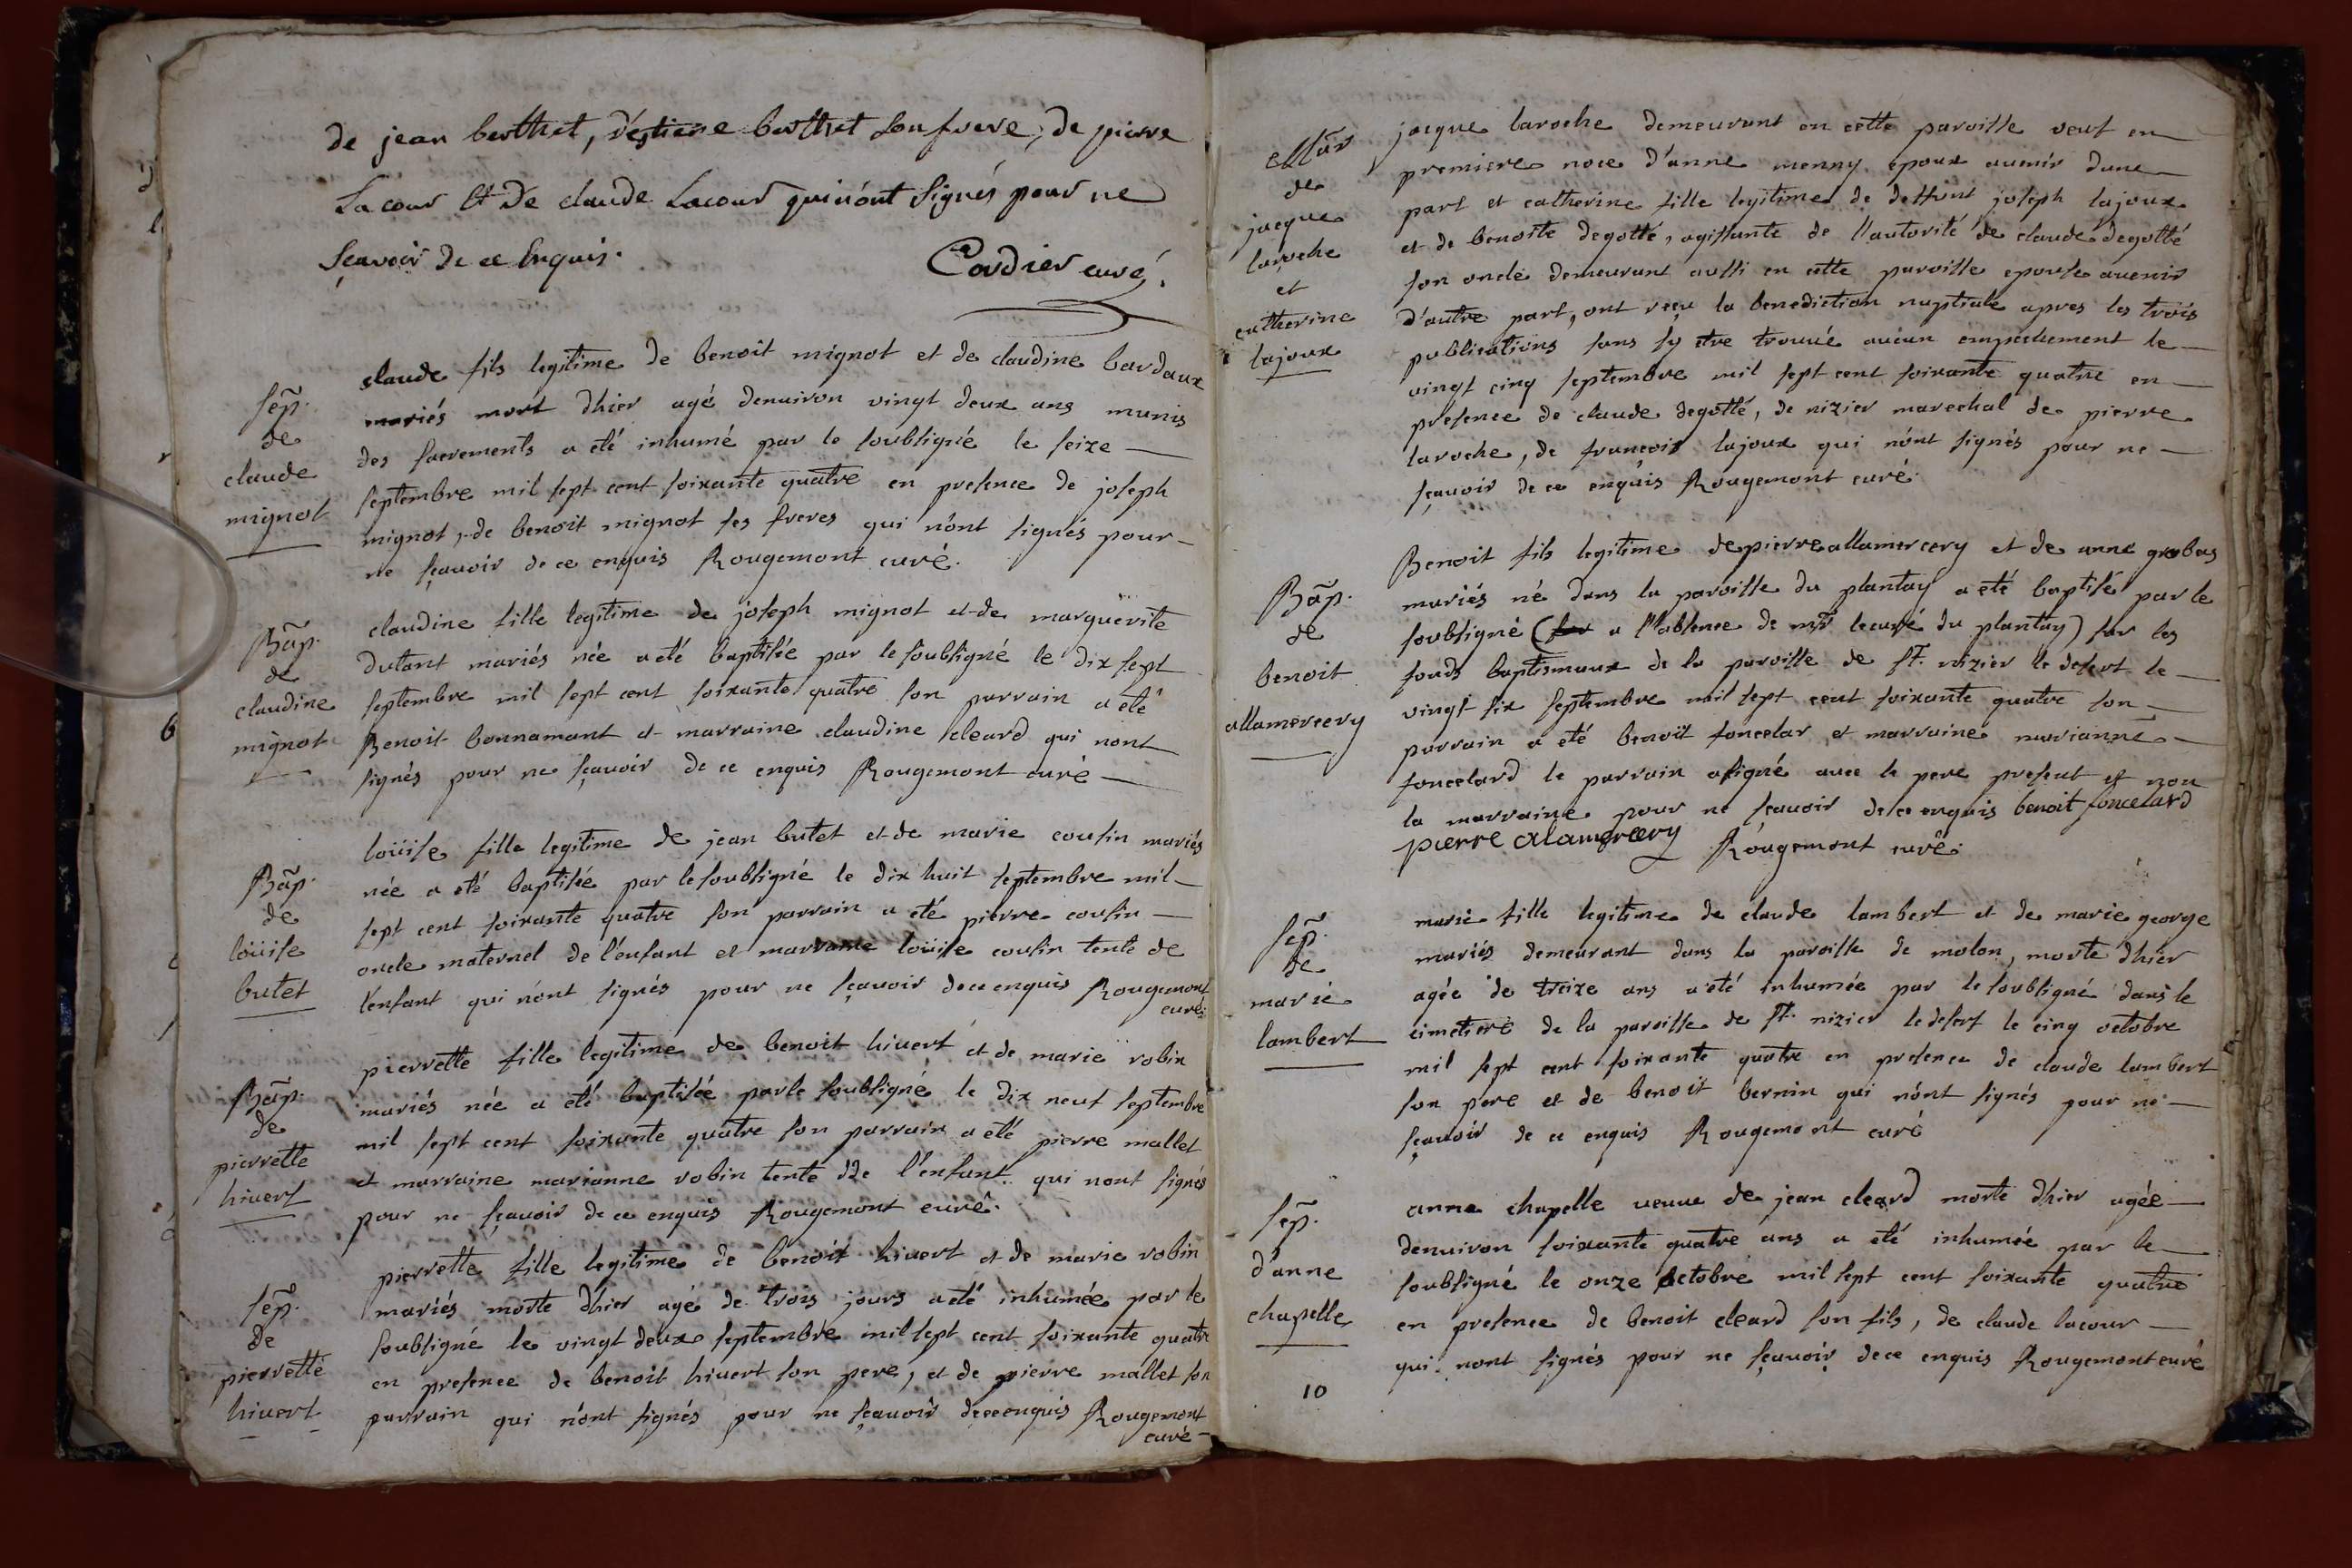 de jean berthet, d'estiene berthet son frere, de pierre
Lacour et de claude Lacour qui n'ont signés pour ne
sçavoir de ce enquis. Cordier curé.
sep.
de
claude
mignot
claude fils legitime de benoit mignot et de claudine bardaux
mariés mort d'hier agé denuiron vingt deux ans munis
des sacrements a eté inhumé par le soubsigné le seize
septembre mil sept cent soixante quatre en presence de joseph
mignot, de benoit mignot ses freres qui n'ont signés pour
ne sçauoir de ce enquis Rougemont curé.
Bap.
de
claudine
mignot
claudine fille legitime de joseph mignot et de marguerite
dutant mariés née a eté baptisée par le soubsigné le dix sept
septembre mil sept cent soixante quatre son parrain a eté
Benoit bonnamant et marraine claudine cleard qui nont
signés pour ne sçauoir de ce enquis Rougemont curé
Bap.
de
loüise
butet
loüise fille legitime de jean butet et de marie cousin mariés
née a eté baptisée par le soubsigné le dix huit septembre mil
sept cent soixante quatre son parrain a eté pierre cousin
oncle maternel de l'enfant et marraine loüise cousin tente de
l'enfant qui n'ont signés pour ne sçavoir de ce enquis Rougemont
curé
Bap.
de
pierrette
hiuert
pierrette fille legitime de benoit hiuert et de marie robin
mariés née a eté baptisée par le soubsigné le dix neuf septembre
mil sept cent soixante quatre son parrain a eté pierre mallet
et marraine marianne robin tente de l'enfant qui nont signés
pour ne sçauoir de ce enquis Rougemont curé.
sep.
de
pierrette
hiuert
pierrette fille legitime de benoit hiuert et de marie robin
mariés morte d'hier agé de trois jours a eté inhumée par le
soubsigné le vingt deux septembre mil sept cent soixante quatre
en presence de benoit hiuert son pere, et de pierre mallet son
parrain qui n'ont signés pour ne sçauoir de ce enquis Rougemont
curé
Mar
de
jacque
laroche
et
catherine
lajoux
jacque laroche demeurant en cette paroisse veuf en
premiere noce d'anne menny epoux auenir dune
part et catherine fille legitime de deffunt joseph lajoux
et de benoite degotté, agissante de l'autorité de claude degotté
son oncle demeurant aussi en cette paroisse epouse auenir
d'autre part, ont reçu la benediction nuptiale apres les trois
publications sans sy etre trouué aucun empechement le
vingt cinq septembre mil sept cent soixante quatre en
presence de claude degotté, de nizier marechal de pierre
laroche, de francois lajoux qui n'ont signés pour ne
sçauoir de ce enquis Rougemont curé.
Bap.
de
benoit
allamercery
Benoit fils legitime de pierre allamercery et de anne grobas
mariés né dans la paroisse du plantay a eté baptisé par le
soubsigné (a l'absence de mr lecuré du plantay) sur les
fonds baptismaux de la paroisse de st. nizier le desert le
vingt six septembre mil sept cent soixante quatre son
parrain a eté benoit foncelar et marraine marianne
foncelard le parrain a signé auec le pere present et non
la marraine pour ne sçauoir de ce enquis benoit foncelard
pierre alamercery Rougemont curé.
sep.
de
marie
lambert
marie fille legitime de claude lambert et de marie george
mariés demeurant dans la paroisse de molon, morte d'hier
agée de treize ans a eté inhumée par le soubsigné dans le
cimetiere de la paroisse de st. nizier le desert le cinq octobre
mil sept cent soixante quatre en presence de claude lambert
son pere et de benoit bernin qui n'ont signés pour ne
sçauoir de ce enquis Rougemont curé
sep.
d'anne
chapelle
anne chapelle veuue de jean cleard morte d'hier agée
denuiron soixante quatre ans a eté inhumée par le
soubsigné le onze octobre mil sept cent soixante quatre
en presence de benoit cleard son fils, de claude lacour
qui nont signés pour ne sçauoir de ce enquis Rougemont curé
10